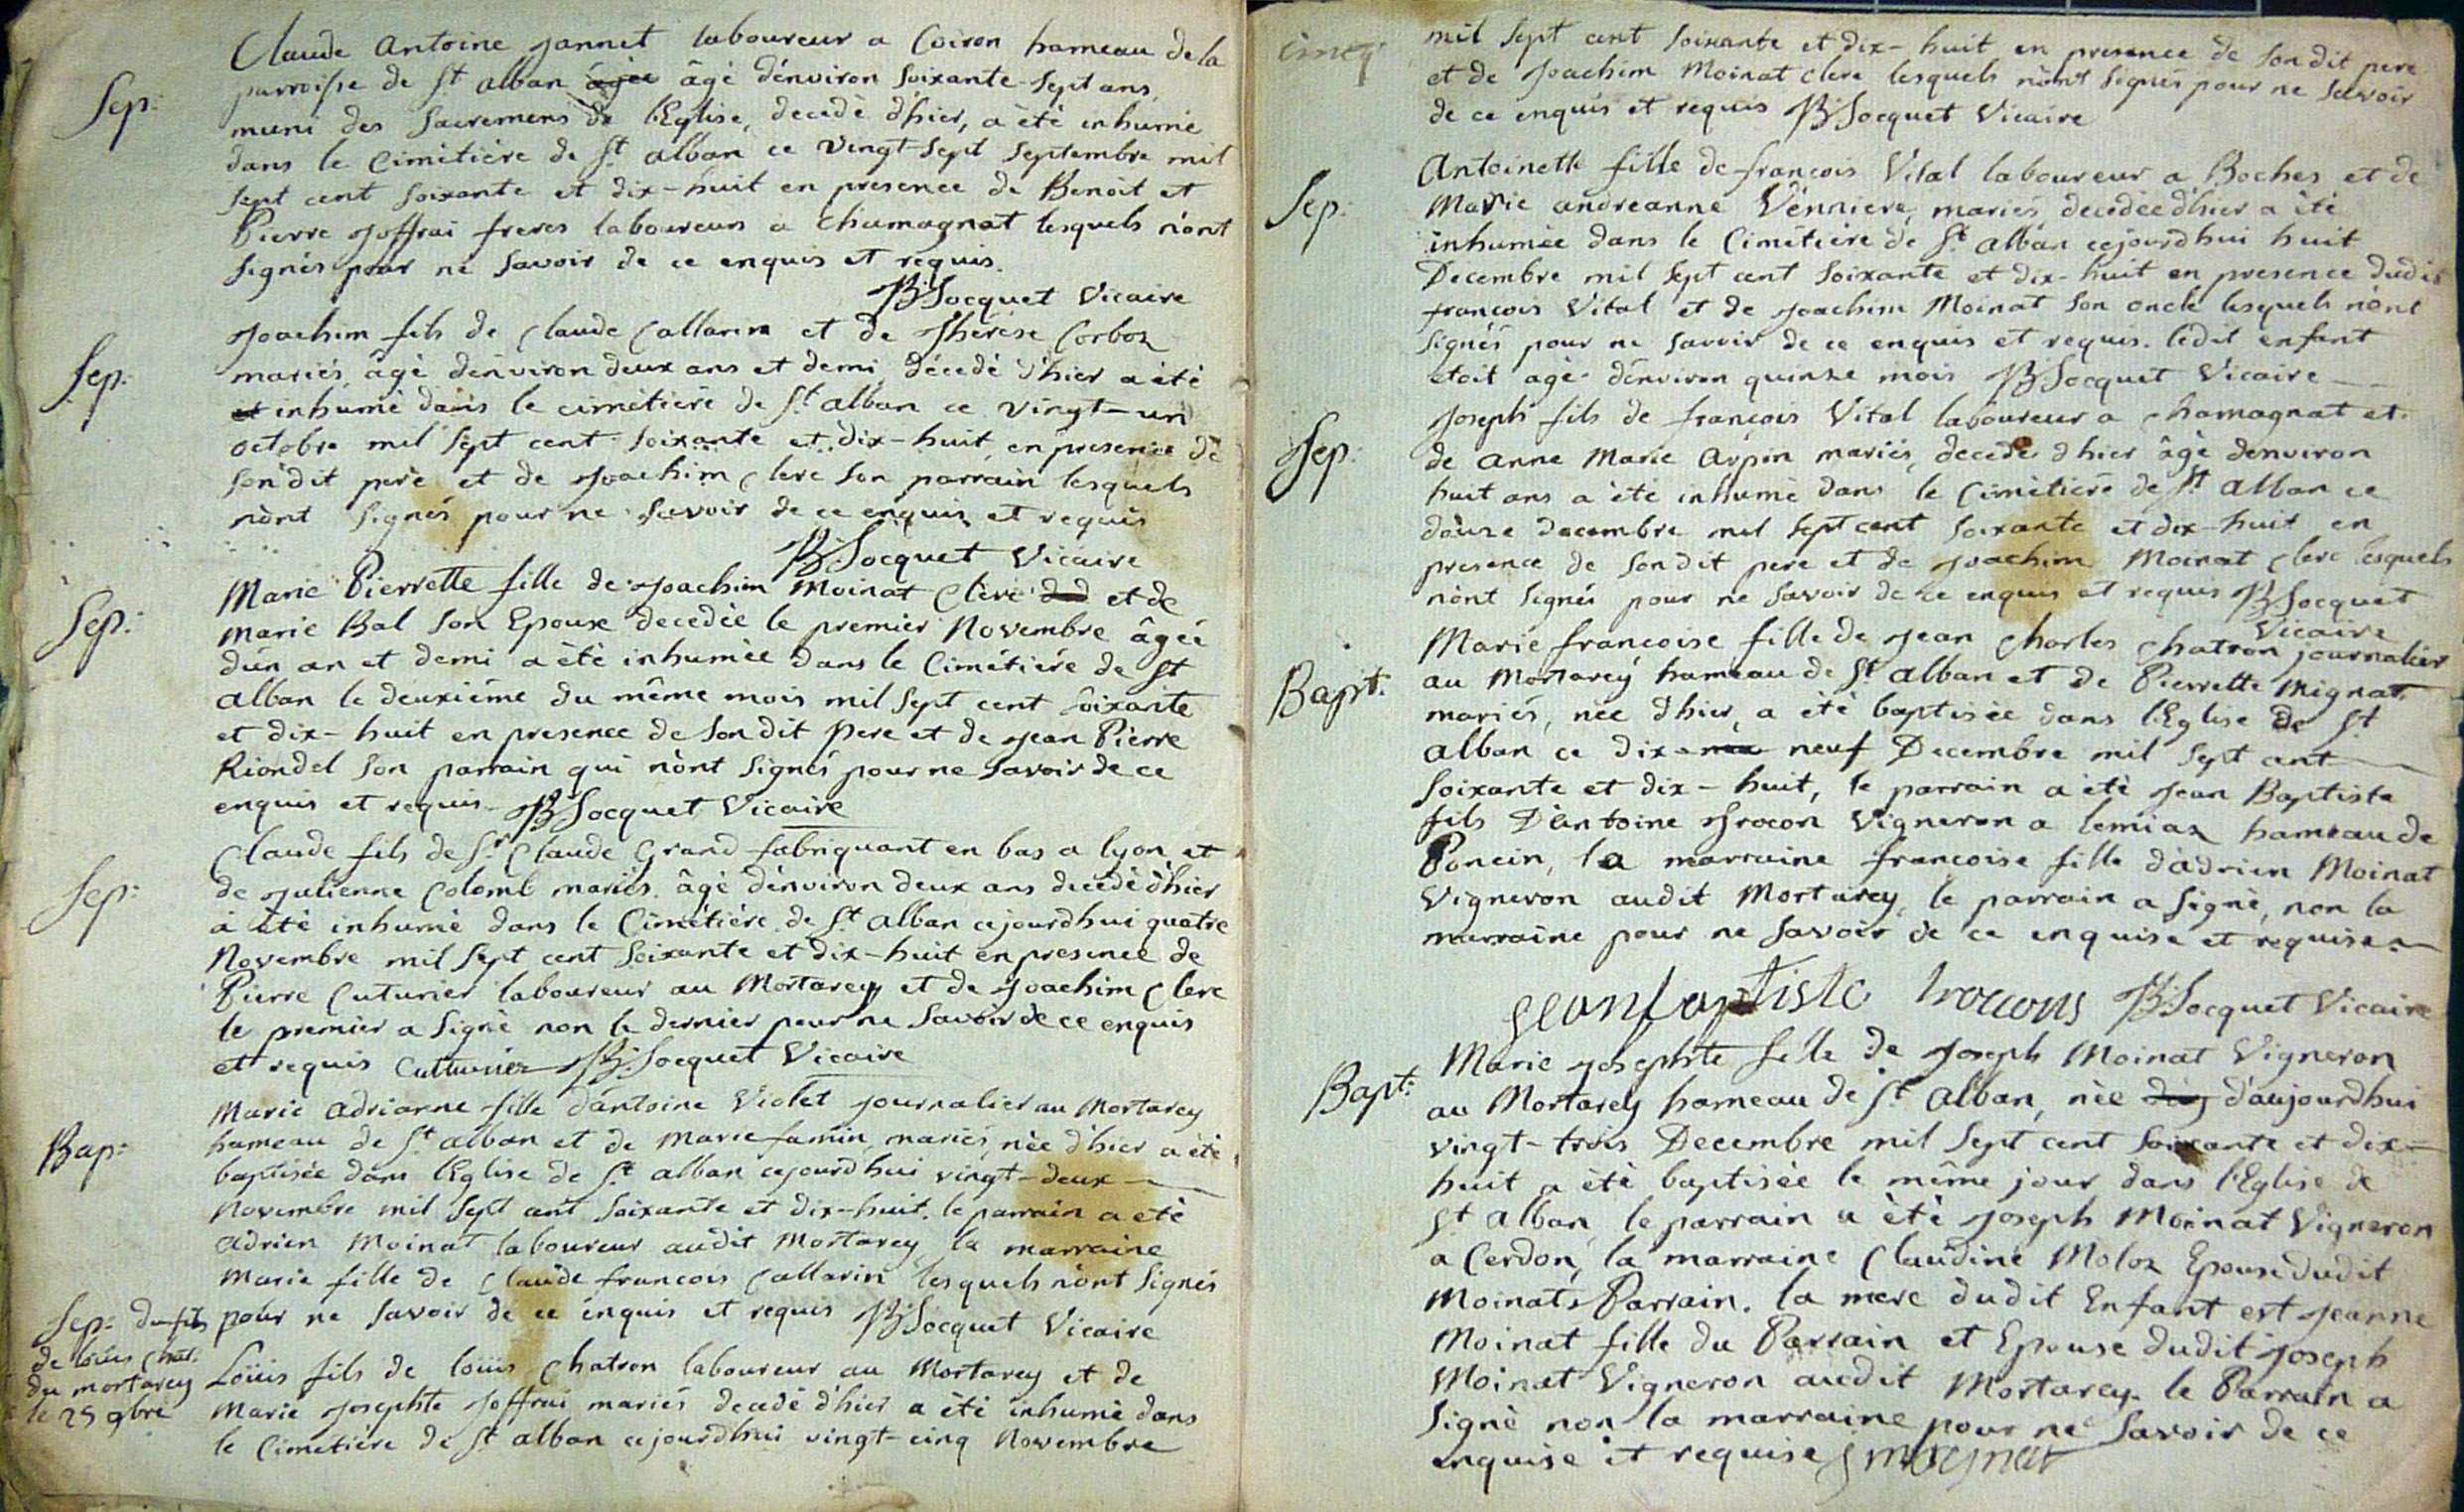 Claude Antoine Jannet laboureur a Coiron hameau de la
Sep: parroisse de St alban âgé d'énviron soixante-sept ans,
muni des Sacremens de l'Eglise, decedé d'hier, a èté inhumé
dans le Cimétiére de St. alban ce vingt-sept Septembre mil
sept cent soixante et dix-huit en presence de Benoit et
Pierre Joffrai freres laboureurs a Chamagnat lesquels n'ont
signés pour ne savoir de ce enquis et requis.
B: Socquet Vicaire
Joachim fils de Claude Callarin et de Thérése Corboz
Sep: mariés, âgé d'énviron deux ans et demi, décédé d'hier a èté
et inhumé dans le cimétiére de St. alban ce vingt-un
octobre mil sept cent soixante et dix-huit, en presence de
son dit pere et de Joachim Clerc son parrain lesquels
n'ont signés pour ne savoir de ce enquis et requis
B: Socquet Vicaire
Marie Pierrette fille de Joachim Moinat Clerc et de
Sep: Marie Bal son Epouse decedée le premier Novembre âgée
d'un an et demi a èté inhumée dans le Cimétiére de St
alban le deuxiéme du même mois mil sept cent soixante
et dix-huit en presence de son dit Pere et de Jean Pierre
Riondel son parrain qui n'ont signés pour ne savoir de ce
enquis et requis - B: Socquet Vicaire
Claude fils de Sr. Claude Grand fabriquant en bas a lyon et
Sep: de Julienne Colomb mariés. âgé d'énviron deux ans decedé d'hier
a èté inhumé dans le Cimétiére de St. alban cejourdhui quatre
Novembre mil sept cent soixante et dix-huit en presence de
Pierre Cuturier laboureur au Mortarey et de Joachim Clerc
le premier a signé non le dernier pour ne savoir de ce enquis
et requis Cutturier B: Socquet Vicaire
Marie Adrianne fille d'antoine Violet journalier au Mortarey
Bap: hameau de St. alban et de Marie famin, mariés, née d'hier a èté
baptisée dans l'Eglise de St. alban cejourd'hui vingt-deux
Novembre mil sept cent soixante et dix-huit. le parrain a èté
Adrien Moinat laboureur audit Mortarey la marraine
Marie fille de Claude francois Callarin lesquels n'ont signés
pour ne savoir de ce enquis et requis B: Socquet Vicaire
Sep: du fils
de loüis Chat.
du mortarey
le 25 9bre
Loüis fils de loüis Chatron laboureur au Mortarey et de
Marie Josephte Joffrai mariés decedé d'hier a èté inhumé dans
le Cimetiére de St alban cejourdhui vingt-cinq Novembre
mil sept cent soixante et dix-huit en presence de son dit pere
et de Joachim Moinat Clerc lesquels n'ont signés pour ne savoir
de ce enquis et requis B: Socquet Vicaire
Antoinette fille de francois Vital laboureur a Boches et de
Sep: Marie andreanne Vénniere, mariés, decedée d'hier a èté
inhumée dans le Cimétiére de St. alban cejourdhui huit
Decembre mil sept cent soixante et dix-huit en presence dudit
francois Vital et de Joachim Moinat son oncle lesquels n'ont
signés pour ne savoir de ce enquis et requis. ledit enfant
etoit agé d'énviron quinze mois B: Socquet Vicaire
Joseph fils de francois Vital laboureur a Chamagnat et
Sep: de Anne Marie Arpin mariés, decedé d'hier âgé d'environ
huit ans a èté inhumé dans le Cimétiére de St alban ce
douze decembre mil sept cent soixante et dix-huit en
presence de son dit pere et de Joachim Moinat Clerc lesquels
n'ont signés pour ne savoir de ce enquis et requis B: Socquet
Vicaire
Marie francoise fille de Jean Charles Chatron journalier
Bapt: au Mortarey hameau de St. alban et de Pierrette Mignat
mariés, née d'hier, a èté baptisée dans l'Eglise de St
alban ce dix neuf Decembre mil sept cent
soixante et dix-huit, le parrain a èté Jean Baptiste
fils D'antoine Trocon Vigneron a lemiaz hameau de
Poncin, la marraine francoise fille d'adrien Moinat
Vigneron audit Mortarey, le parrain a signé, non la
marraine pour ne savoir de ce enquise et requise
Jean baptiste trocons B: Socquet Vicaire
Marie Josephte fille de Joseph Moinat Vigneron
Bapt: au Mortarey hameau de St. Alban, née d'aujourdhui
vingt-trois Decembre mil sept cent soixante et dix-
huit a èté baptisée le même jour dans l'Eglise de
St alban, le parrain a èté Joseph Moinat Vigneron
a Cerdon, la marraine Claudine Moloz Epouse dudit
Moinat Parrain. la mere dudit Enfant est Jeanne
Moinat fille du Parrain et Epouse dudit Joseph
Moinat Vigneron audit Mortarey. le Parrain a
signé non la marraine pour ne savoir de ce
enquise et requise J moynat